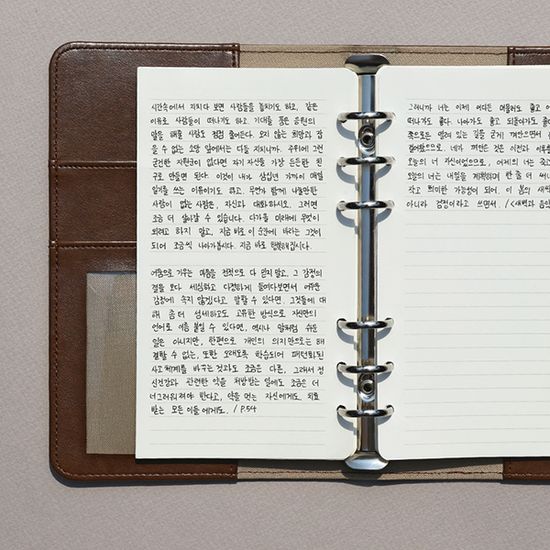 시간속에서 지치다 보면 사람들을 놓치기도 하고, 같은
이유로 사람들이 떠나기도 하고, 기대를 품은 응원의
말을 해줄 사람도 점점 줄어든다. 오지 않는 희망과 잡
을 수 없는 소망 앞에서는 다들 지치니까. 주위에 그런
굳건한 지원군이 없다면 자기 자신을 가장 든든한 친
구로 만들면 된다. 이것이 내가 삼십년 가까이 매일
일기를 쓰는 이유이기도 하다. 무언가 함께 나눌만한
사람이 없는 사람은, 자신과 대화하시오. 그러면
조금 더 살아갈 수 있습니다. 다가올 미래에 무엇이
되려고 하지 말고, 지금 바로 이 순간에 바라는 그것이
되어 조금씩 나아가봅시다. 지금 바로 행복해집시다.
어둠으로 기우는 마음을 전적으로 다 믿지 말고, 그 감정의
결을 보다 세심하고 다정하게 들여다보면서 어두운
감정에 속지 않겠다고 말할 수 있다면, 그것들에 대
해 좀 더 섬세하고도 고유한 방식으로 자신만의
언어로 이름 붙일 수 있다면, 역시나 말처럼 쉬운
일은 아니지만, 한편으로 개인의 의지만으로는 해
결할 수 없는, 또한 오래도록 학습되어 패턴화된
사고체계를 바꾸는것과도 조금은 다른, 그래서 정
신건강과 관련한 약을 처방받는 일에도 조금은 더
너그러워져야 한다고, 약을 먹는 자신에게도, 치료
받는 모든 이들에게도. / P.54
그러니까 너는 이제 어디든 머물러도 좋고
떠나가도 좋다. 나아가도 좋고 되돌아가도 좋
쪽으로든 열려 있는 길을 걷게
걸어왔으므로, 네가 껴안은 것은 이전과 이후
오늘의 너 자신이었으므로, 어제의 너는
오늘의 너는 내일을 기약하며 한 줄 더 써
작고 희미한 가능성이 되어, 이 봄의 새벽
아니라 검정이라고 쓰면서. / <새벽과 음악